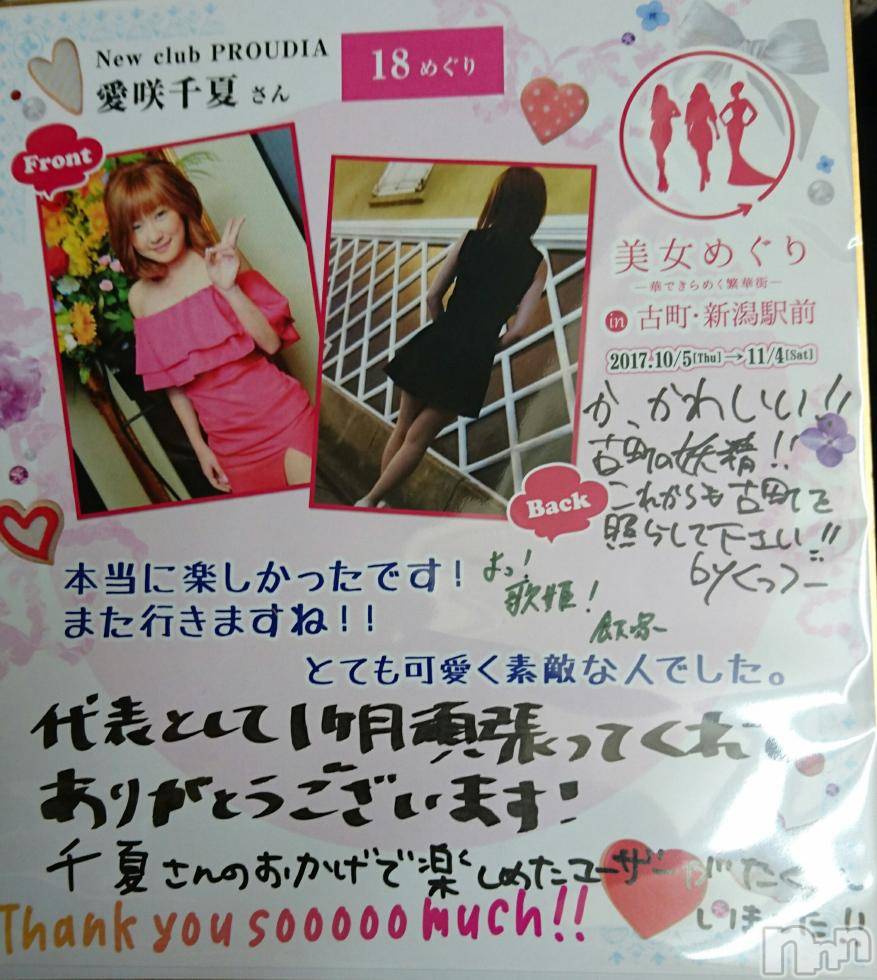 New club PROUDIA
愛咲千夏 さん
18 めぐり
Front
Back
美女めぐり
―華できらめく繁華街―
in 古町・新潟駅前
2017.10/5[Thu]→11/4[Sat]
か、かわしいい!!
古町の妖精!!
これからも古町を
照らして下さい!!
by くっつー
よっ!
歌姫!
本当に楽しかったです!
また行きますね!!
とても可愛く素敵な人でした。
代表として1ヶ月頑張ってくれて
ありがとうございます!
千夏さんのおかげで楽しめたユーザーがたくさん
いました!!
Thank you sooooo much!!